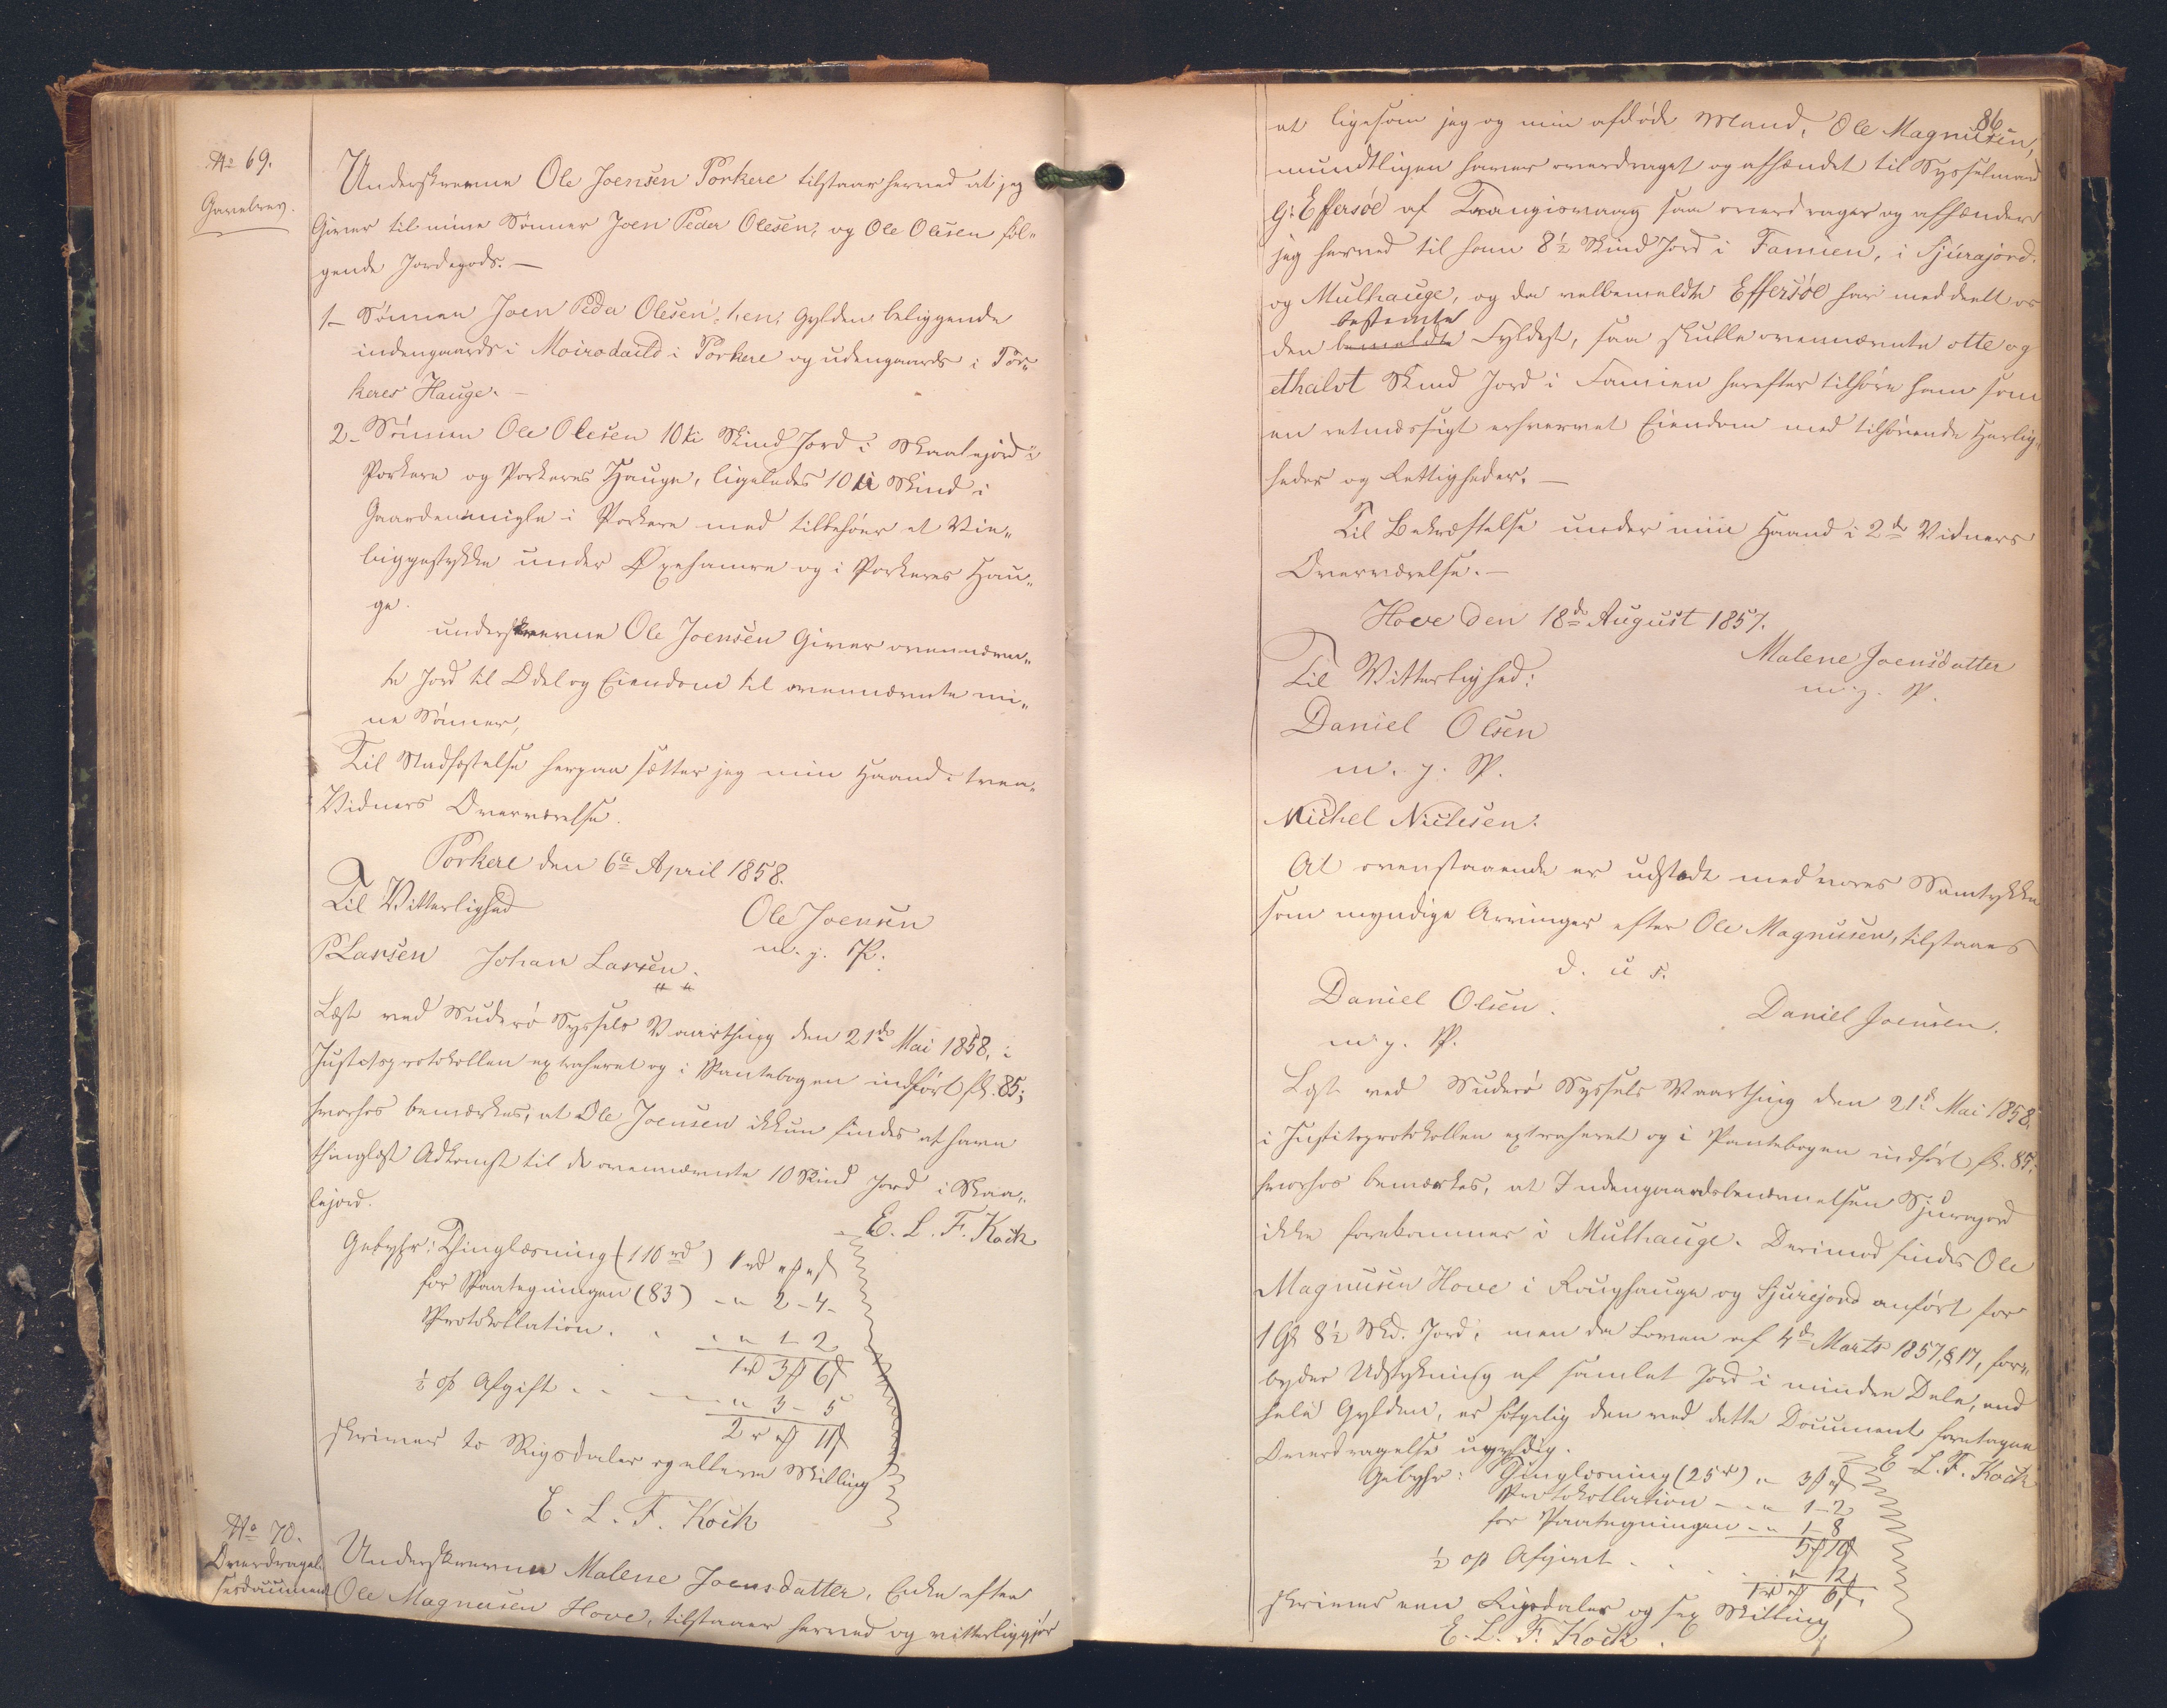 № 69.
Gavebrev.
Underskrevne Ole Joensen Porkere tilstaar herved at jeg
Giver til mine Sønner Joen Peder Olesen, og Ole Olesen føl„
gende Jordegods. —
1_ Sønnen Joen Peder Olesen, hen: Gylden beliggende
indengaards i Moirodaild i Porkere og udengaards i Por„
keres Hauge. —
2_ Sønnen Ole Olesen 10 ti Skind Jord i Skaalejord i
Porkere og Porkeres Hauge, ligeledes 10 ti Skind i
Gaardenmigle i Porkere med tilbehør et Vin„
liggestykke under Øxehamre og i Porkeres Hau„
ge.
underskrevne Ole Joensen Giver ovennævn„
te Jord til Odel og Eiendom til ovennævnte mi„
ne Sønner,
Til Stadfæstelse herpaa sætter jeg min Haand i tven„
Vidners Overværelse.
Porkere den 6te April 1858.
Til Vitterlighed
Ole Joensen
m. j. P.
P. Larsen Johan Larsen.
Læst ved Suderø Syssels Vaarthing den 21de Mai 1858, i
Justitsprotokollen extraheret og i Pantebogen indført fol. 85;
hvorhos bemærkes, at Ole Joensen ikkun findes at have
thinglæst Adkomst til de ovennævnte 10 Skind Jord i Skaa„
lejord.
E. L. F. Kock
Gebyhr: Thinglæsning (110 rd) 1 rd „ ß „ ß
for Paategningen (83) - „ 2 - 4 -
Protokollation . . . „ 1 - 2
1 rd 3 ß 6 ß
½ pC Afgift . . — „ 3 - 5
2 rd „ ß 11 ß
skrives to Rigsdaler og elleve Skilling
E. L. F. Kock
№ 70.
Overdragel„
sesdocument
Underskrevne Malene Joensdatter, Enke efter
Ole Magnusen Hove, tilstaaer herved og vitterliggjør
86
at ligesom jeg og min afdøde Mand, Ole Magnusen,
mundtligen haver overdraget og afhændet til Sysselmand
G: Effersøe af Trangisvaag saa overdrager og afhænder
jeg herved til ham 8½ Skind Jord i Famien, i Sjurajord.
og Mulhauge, og da velbemeldte Effersøe har meddeelt os
bestemte
den bemeldte Fyldest, saa skulle ovennævnte otte og
ethalvt Skind Jord i Famien herefter tilhøre ham som
en retmæssigt erhvervet Eiendom med tilhørende Herlig„
heder og Rettigheder. —
Til Bekræftelse under min Haand i 2de Vidners
Overværelse. —
Hove den 18de August 1857.
Malene Joensdatter
m. j. P.
Til Vitterlighed:
Daniel Olsen
m. j. P.
Michel Niclesen.
At ovenstaaende er udstedt med vores Samtykke
som myndige Arvinger efter Ole Magnusen, tilstaaes
d. u s.
Daniel Olsen.
m. j. P.
Daniel Joensen.
Læst ved Suderø Syssels Vaarthing den 21de Mai 1858.
i Justitsprotokollen extraheret og i Pantebogen indført fol. 85;
hvorhos bemærkes, at Indengaardsbenævnelsen Sjurajord
ikke forekommer i Mulhauge. Derimod findes Ole
Magnusen Hove i Roughauge og Sjurejord anført for
1 Gl 8½ Skd. Jord; men da Loven af 4de Marts 1857, § 17, for„
byder Udstykning af samlet Jord i mindre Dele, end
hele Gylden, er følgelig den ved dette Document foretagne
Overdragelse ugyldig.
E. L. F. Kock
Gebyhr: Thinglæsning (25 rd) „ 3 ß „ ß
Protokollation - „ 1 - 2
for Paategningen - „ 1 - 8
5 ß 10 ß
½ pC Afgivt . . . „ 12
1 rd „ ß 6 ß.
skrives een Rigsdaler og sex Skilling
E. L. F. Kock.